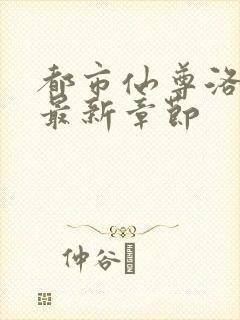 都市仙尊洛
最新章节
仲谷